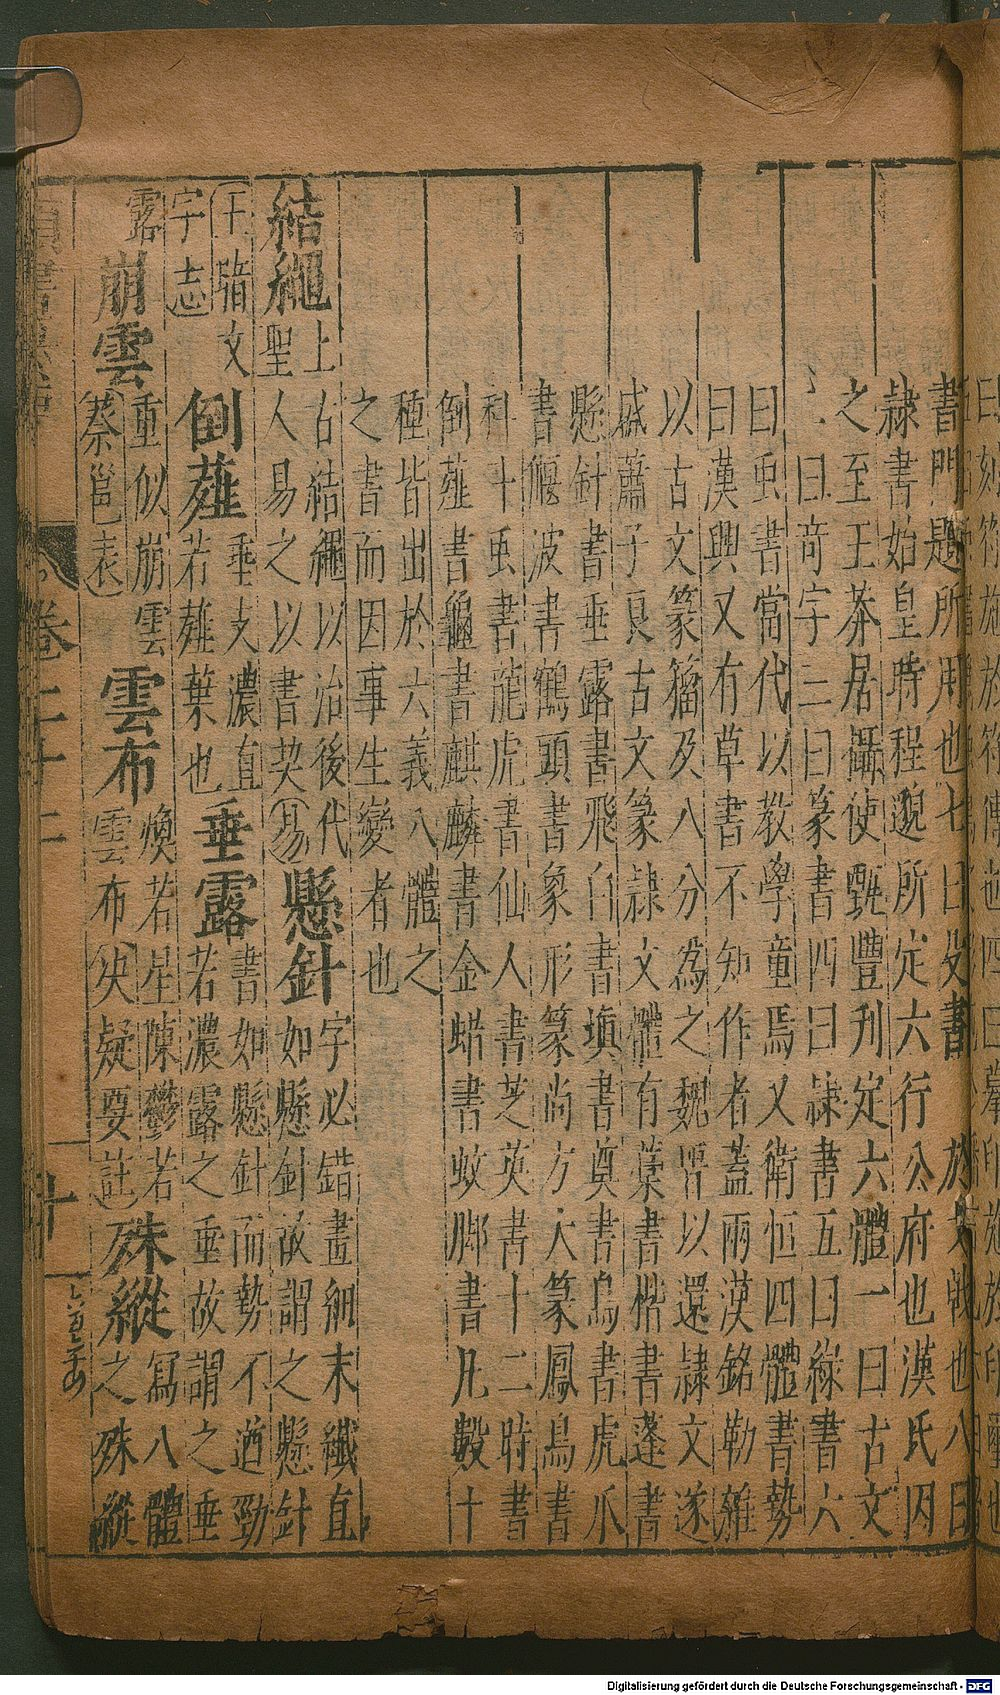 書門題所用也七曰殳書　於文戟也八曰
隸書始皇時程邈所定六行公府也漢氏因
之至王莽居攝使甄豐刋定六體一曰古文
二曰竒字三曰篆書四曰隸書五曰繆書六
曰虫書當代以敎學童焉又衛恒四體書勢
曰漢興又有草書不知作者蓋兩漢銘勒雜
以古文篆籀及八分為之魏晋以還隸文遂
盛蕭子良古文篆隸文體有藁書楷書蓬書
懸針書垂露書飛白書塡書奠書鳥書虎爪
書偃波書鶴頭書象形篆尚方大篆鳳鳥書
科斗虫書龍虎書仙人書芝英書十二時書
倒薤書龜書麒麟書金蜡書蚊脚書凡數十
種皆出於六義八體之
之書而因事生變者也
結繩
上古結繩以治後代
聖人易之以書契(易)
懸針
字必錯畫細末纎直
如懸針故謂之懸針
(王愔文
字志)
倒薤
垂支濃直
若薤葉也
垂露
書如懸針而勢不遒勁
若濃露之垂故謂之垂
露
崩雲
重似崩雲
(蔡邕表)
雲布
煥若星陳鬱若
雲布(决疑要註)
殊縱
寫八體
之殊縱
卷二十二
十